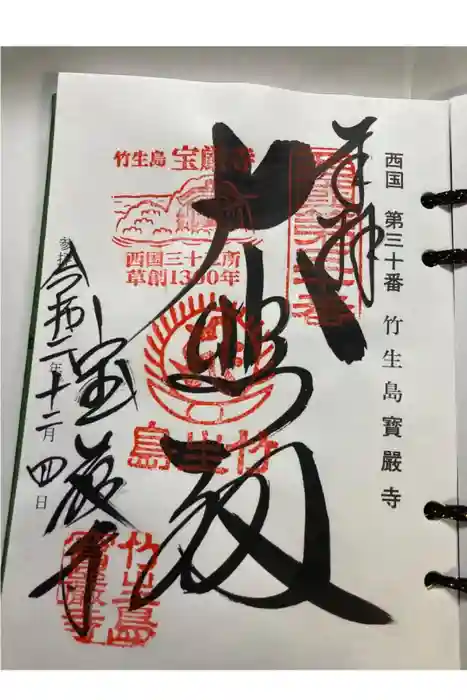 西国 第三十番 竹生島寶嚴寺
奉拝
西国三十番
竹生島 宝厳寺
西国三十三所
草創1300年
大悲殿
竹生島
宝厳寺
竹生島
寶嚴寺
参拝
令和二年十二月四日